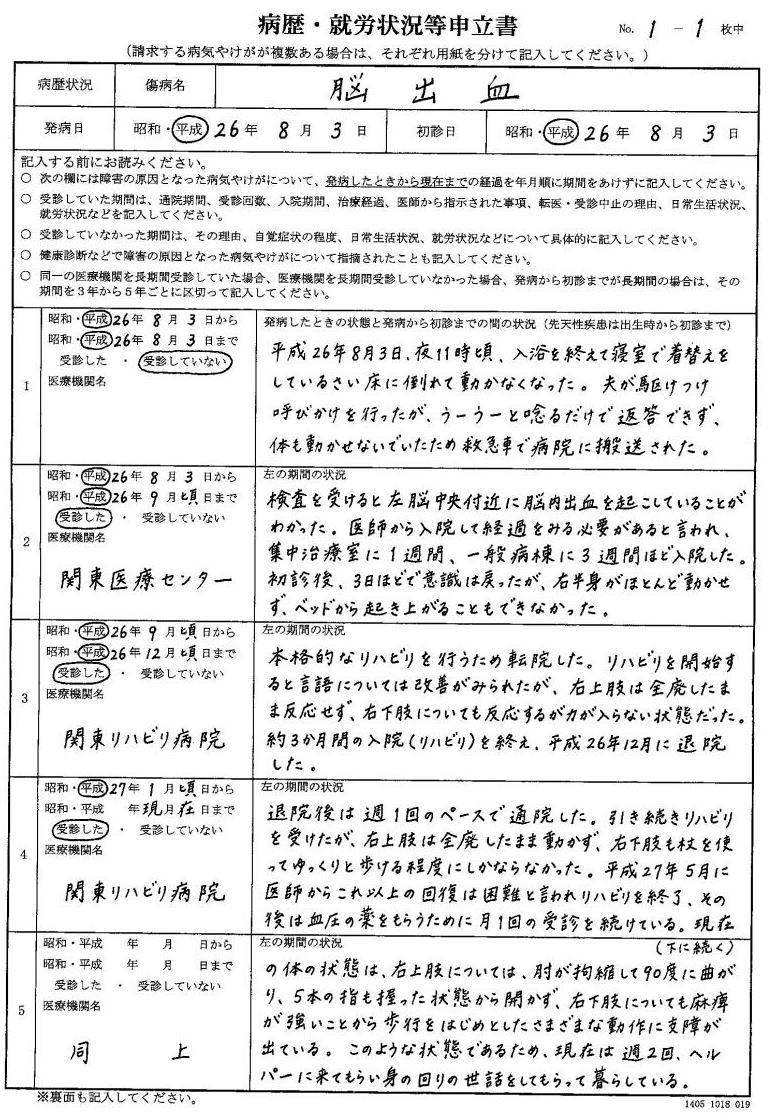 病歴・就労状況等申立書
No. 1 － 1 枚中
（請求する病気やけがが複数ある場合は、それぞれ用紙を分けて記入してください。）
病歴状況 傷病名 脳出血
発病日 昭和・平成 26年 8月 3日 初診日 昭和・平成 26年 8月 3日
記入する前にお読みください。
○ 次の欄には障害の原因となった病気やけがについて、発病したときから現在までの経過を年月順に期間をあけずに記入してください。
○ 受診していた期間は、通院期間、受診回数、入院期間、治療経過、医師から指示された事項、転医・受診中止の理由、日常生活状況、
就労状況などを記入してください。
○ 受診していなかった期間は、その理由、自覚症状の程度、日常生活状況、就労状況などについて具体的に記入してください。
○ 健康診断などで障害の原因となった病気やけがについて指摘されたことも記入してください。
○ 同一の医療機関を長期間受診していた場合、医療機関を長期間受診していなかった場合、発病から初診までが長期間の場合は、その
期間を３年から５年ごとに区切って記入してください。
1
昭和・平成26年 8月 3日から
昭和・平成26年 8月 3日まで
受診した ・ 受診していない
医療機関名
発病したときの状態と発病から初診までの間の状況（先天性疾患は出生時から初診まで）
平成26年8月3日、夜11時頃、入浴を終えて寝室で着替えを
しているさい床に倒れて動かなくなった。夫が駆けつけ
呼びかけを行ったが、うーうーと唸るだけで返答できず、
体も動かせないでいたため救急車で病院に搬送された。
2
昭和・平成26年 8月 3日から
昭和・平成26年 9月頃日まで
受診した ・ 受診していない
医療機関名
関東医療センター
左の期間の状況
検査を受けると左脳中央付近に脳内出血を起こしていることが
わかった。医師から入院して経過をみる必要があると言われ、
集中治療室に1週間、一般病棟に3週間ほど入院した。
初診後、3日ほどで意識は戻ったが、右半身がほとんど動かせ
ず、ベッドから起き上がることもできなかった。
3
昭和・平成26年 9月頃日から
昭和・平成26年12月頃日まで
受診した ・ 受診していない
医療機関名
関東リハビリ病院
左の期間の状況
本格的なリハビリを行うため転院した。リハビリを開始す
ると言語については改善がみられたが、右上肢は全廃したま
ま反応せず、右下肢についても反応するが力が入らない状態だった。
約3か月間の入院（リハビリ）を終え、平成26年12月に退院
した。
4
昭和・平成27年 1月頃日から
昭和・平成 年現月在日まで
受診した ・ 受診していない
医療機関名
関東リハビリ病院
左の期間の状況
退院後は週1回のペースで通院した。引き続きリハビリ
を受けたが、右上肢は全廃したまま動かず、右下肢も杖を使
ってゆっくりと歩ける程度にしかならなかった。平成27年5月に
医師からこれ以上の回復は困難と言われリハビリを終了、その
後は血圧の薬をもらうために月1回の受診を続けている。現在
（下に続く）
5
昭和・平成 年 月 日から
昭和・平成 年 月 日まで
受診した ・ 受診していない
医療機関名
同上
左の期間の状況
の体の状態は、右上肢については、肘が拘縮して90度に曲が
り、5本の指も握った状態から開かず、右下肢についても麻痺
が強いことから歩行をはじめとしたさまざまな動作に支障が
出ている。このような状態であるため、現在は週2回、ヘル
パーに来てもらい身の回りの世話をしてもらって暮らしている。
※裏面も記入してください。
1405 1018 019